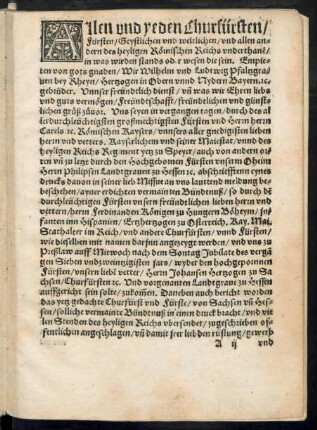 Allen vnd yeden Churfürsten/
Fürsten/ Geystlichen vnd weltlichen/ vnd allen an-
dern des heyligen Römischen Reichs vnderthanē/
in was wirden stands od.r wesen die sein. Empie-
ten von gots gnaden/ Wir Wilhelm vnd Ludwig Pfaltzgra-
uen bey Rheyn/ Hertzogen in Obern vnnd Nydern Bayern.ꝛc.
gebrüder. Vnnser freündtlich dienst/ vñ was wir Ehren liebs
vnd guts vermögen/ Freündtschafft/ freündtlichen vnd günst-
lichen grůß zůuor. Vns seyen in vergangen tagen/ durch des al-
lerdurchleüchtigsten großmechtigsten Fürsten vnd Herrn
Carels ꝛc. Römischen Kaysers/ vnnsers aller gnedigisten lieben
herrn vnd vetters. Kayserlichen vnd seiner Maiestat/ vnnd des
heyligen Reichs Regiment yetz zu Speyer/ auch von andern or-
ten vñ zu letz durch den Hochgebornen Fürsten vnsern Oheim
Herrn Philipsen Landtgrauen zu Hessen ꝛc. abschrifften eyns
drucks dauon in seiner lieb Missiue an vns lauttend meldung be-
beschehen/ ayner erdichten vermainten Bündtnuß/ so durch dē
durchleüchtigen Fürsten vnsern freündtlichen lieben herrn vnd
vettern/ herrn Ferdinanden Königen zu Hungern Böheym/ in-
fanten inn Hispanien/ Ertzhertzogen zu Osterreich/ Kay. May.
Stathalter im Reich/ vnd ander Churfürsten/ vnnd Fürsten/
wie dieselben mit namen darjnn angezeygt werden/ vnd vns zu
Preßlaw auff Mitwoch nach dem Sontag Jubilate des vergā
gen Sieben vnd zweinzigisten jars/ wyder den hochgepornnen
Fürsten/ vnsern liebē vetter/ Herrn Johansen Hertzogen zu
Sachsen/ Churfürsten ꝛc. Vnd vorgenanten Landtgraue zu Hessen
auffgericht sein solte/ zukōmen. Daneben auch bericht worden
das yetz gedachte Churfürst vnd Fürste/ von Sachsen vñ Hes-
sen/ sollicht vermainte Bündtnuß in einen druck bracht/ vnd vie
len Stenden des heyligen Reichs vbersendet/ zugeschriebē of-
fentlichen angeschlagen/ vñ damit jrer lieb den rüstung/ gewerb
A ij vnd